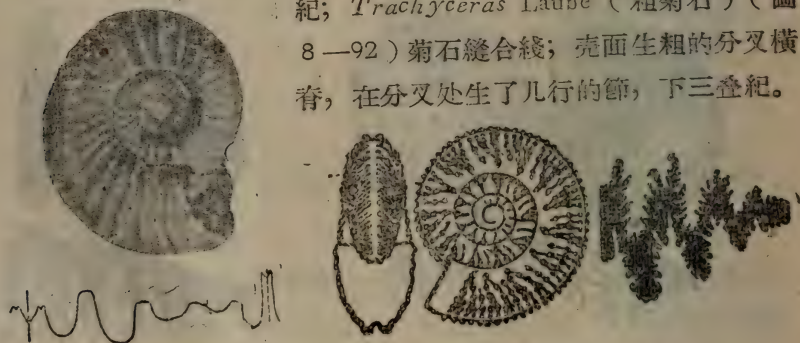 紀; Trachyceras Laube (粗菊石) (圖
8—92) 菊石縫合綫; 壳面生粗的分叉橫
脊, 在分叉处生了几行的節, 下三叠紀。